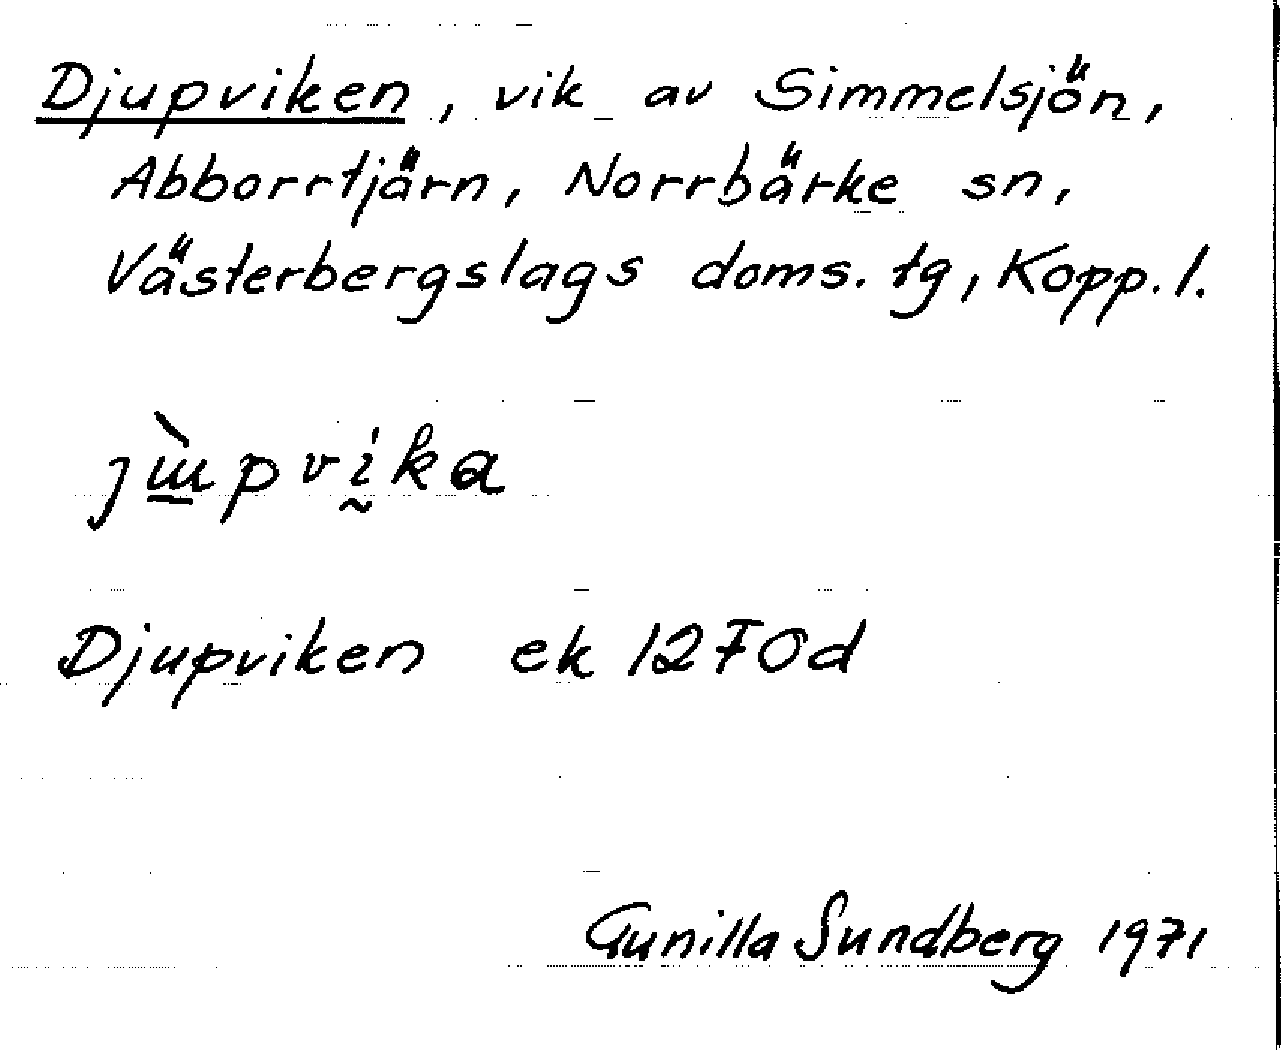 Djupviken, vik av Simmelsjön,
Abborrtjärn, Norrbärke sn,
Västerbergslags doms. tg, Kopp. l.
jɯ̲̀pvḭka
Djupviken ek 12F0d
Gunilla Sundberg 1971